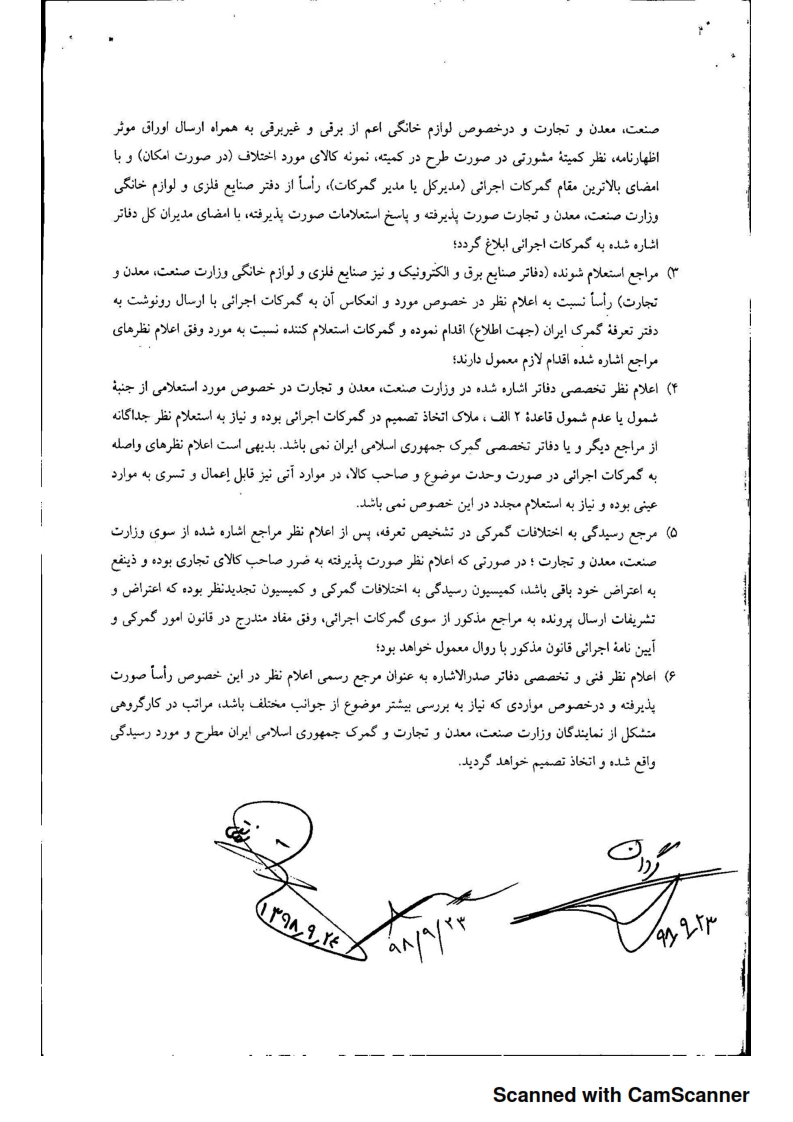 ۲
صنعت، معدن و تجارت و درخصوص لوازم خانگی اعم از برقی و غیربرقی به همراه ارسال اوراق موثر
اظهارنامه، نظر کمیتهٔ مشورتی در صورت طرح در کمیته، نمونه کالای مورد اختلاف (در صورت امکان) و با
امضای بالاترین مقام گمرکات اجرائی (مدیرکل یا مدیر گمرکات)، رأساً از دفتر صنایع فلزی و لوازم خانگی
وزارت صنعت، معدن و تجارت صورت پذیرفته و پاسخ استعلامات صورت پذیرفته، با امضای مدیران کل دفاتر
اشاره شده به گمرکات اجرائی ابلاغ گردد؛
۳) مراجع استعلام شونده (دفاتر صنایع برق و الکترونیک و نیز صنایع فلزی و لوازم خانگی وزارت صنعت، معدن و
تجارت) رأساً نسبت به اعلام نظر در خصوص مورد و انعکاس آن به گمرکات اجرائی با ارسال رونوشت به
دفتر تعرفهٔ گمرک ایران (جهت اطلاع) اقدام نموده و گمرکات استعلام کننده نسبت به مورد وفق اعلام نظرهای
مراجع اشاره شده اقدام لازم معمول دارند؛
۴) اعلام نظر تخصصی دفاتر اشاره شده در وزارت صنعت، معدن و تجارت در خصوص مورد استعلامی از جنبهٔ
شمول یا عدم شمول قاعدهٔ ۲ الف ، ملاک اتخاذ تصمیم در گمرکات اجرائی بوده و نیاز به استعلام نظر جداگانه
از مراجع دیگر و یا دفاتر تخصصی گمرک جمهوری اسلامی ایران نمی باشد. بدیهی است اعلام نظرهای واصله
به گمرکات اجرائی در صورت وحدت موضوع و صاحب کالا، در موارد آتی نیز قابل اِعمال و تسری به موارد
عینی بوده و نیاز به استعلام مجدد در این خصوص نمی باشد.
۵) مرجع رسیدگی به اختلافات گمرکی در تشخیص تعرفه، پس از اعلام نظر مراجع اشاره شده از سوی وزارت
صنعت، معدن و تجارت ؛ در صورتی که اعلام نظر صورت پذیرفته به ضرر صاحب کالای تجاری بوده و ذینفع
به اعتراض خود باقی باشد، کمیسیون رسیدگی به اختلافات گمرکی و کمیسیون تجدیدنظر بوده که اعتراض و
تشریفات ارسال پرونده به مراجع مذکور از سوی گمرکات اجرائی، وفق مفاد مندرج در قانون امور گمرکی و
آیین نامهٔ اجرائی قانون مذکور با روال معمول خواهد بود؛
۶) اعلام نظر فنی و تخصصی دفاتر صدرالاشاره به عنوان مرجع رسمی اعلام نظر در این خصوص رأساً صورت
پذیرفته و درخصوص مواردی که نیاز به بررسی بیشتر موضوع از جوانب مختلف باشد، مراتب در کارگروهی
متشکل از نمایندگان وزارت صنعت، معدن و تجارت و گمرک جمهوری اسلامی ایران مطرح و مورد رسیدگی
واقع شده و اتخاذ تصمیم خواهد گردید.
۹۸/۹/۲۳
۹۸/۹/۲۳
۱۳۹۸/۹/۲۴
Scanned with CamScanner